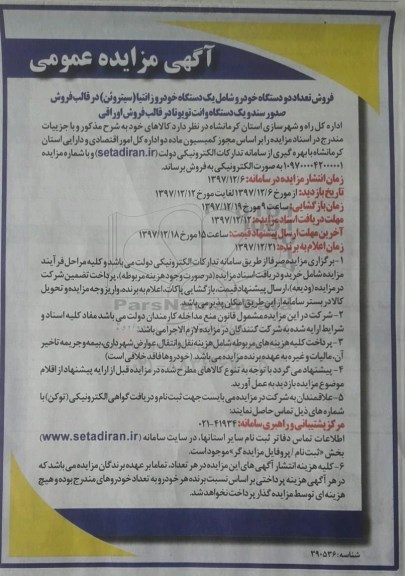 آگهی مزایده عمومی
فروش تعداد دو دستگاه خودرو شامل یک دستگاه خودرو زانتیا (سیتروئن) در قالب فروش
صدور سند و یک دستگاه وانت تویوتا در قالب فروش اوراقی
اداره کل راه و شهرسازی استان کرمانشاه در نظر دارد کالاهای خود به شرح مذکور و با جزییات
مندرج در اسناد مزایده را بر اساس مجوز کمیسیون ماده دو اداره کل امور اقتصادی و دارایی استان
کرمانشاه با بهره گیری از سامانه تدارکات الکترونیکی دولت (setadiran.ir) و با شماره مزایده
۱۰۹۷۰۰۰۰۴۲۰۰۰۰۰۱ به صورت الکترونیکی به فروش برساند.
زمان انتشار مزایده در سامانه: ۱۳۹۷/۱۲/۶
تاریخ بازدید: از مورخ ۱۳۹۷/۱۲/۶ لغایت مورخ ۱۳۹۷/۱۲/۱۲
زمان بازگشایی: ساعت ۹ مورخ ۱۳۹۷/۱۲/۱۹
مهلت دریافت اسناد مزایده: ۱۳۹۷/۱۲/۱۲
آخرین مهلت ارسال پیشنهاد قیمت: ساعت ۱۵ مورخ ۱۳۹۷/۱۲/۱۸
زمان اعلام به برنده: ۱۳۹۷/۱۲/۲۱
۱- برگزاری مزایده صرفا از طریق سامانه تدارکات الکترونیکی دولت می باشد و کلیه مراحل فرآیند
مزایده شامل خرید و دریافت اسناد مزایده (در صورت وجود هزینه مربوطه)، پرداخت تضمین شرکت
در مزایده (ودیعه)، ارسال پیشنهاد قیمت، بازگشایی پاکات، اعلام به برنده، واریز وجه مزایده و تحویل
کالا در بستر سامانه از این طریق امکان پذیر می باشد
۲- شرکت در این مزایده مشمول قانون منع مداخله کارمندان دولت می باشد مفاد کلیه اسناد و
شرایط ارایه شده به شرکت کنندگان در مزایده لازم الاجرا می باشد.
۳- پرداخت کلیه هزینه های مربوطه شامل هزینه نقل و انتقال، عوارض شهرداری، بیمه و جریمه تاخیر
آن، مالیات و غیره به عهده برنده مزایده می باشد. (خودروها فاقد خلافی است)
۴- پیشنهاد می گردد با توجه به تنوع کالاهای مطرح شده در مزایده قبل از ارایه پیشنهاد از اقلام
موضوع مزایده بازدید به عمل آورید.
۵- علاقمندان به شرکت در مزایده می بایست جهت ثبت نام و دریافت گواهی الکترونیکی (توکن) با
شماره های ذیل تماس حاصل نمایند:
مرکز پشتیبانی و راهبری سامانه: ۴۱۹۳۴-۰۲۱
اطلاعات تماس دفاتر ثبت نام سایر استانها، در سایت سامانه (www.setadiran.ir)
بخش «ثبت نام / پروفایل مزایده گر» موجود است.
۶- کلیه هزینه انتشار آگهی های این مزایده در هر تعداد، تماما بر عهده برندگان مزایده می باشد که
در هر آگهی هزینه پرداختی بر اساس نسبت برنده هر خودرو به تعداد خودروهای مندرج بوده و هیچ
هزینه ای توسط مزایده گذار پرداخت نخواهد شد.
شناسه: ۳۹۰۵۳۶